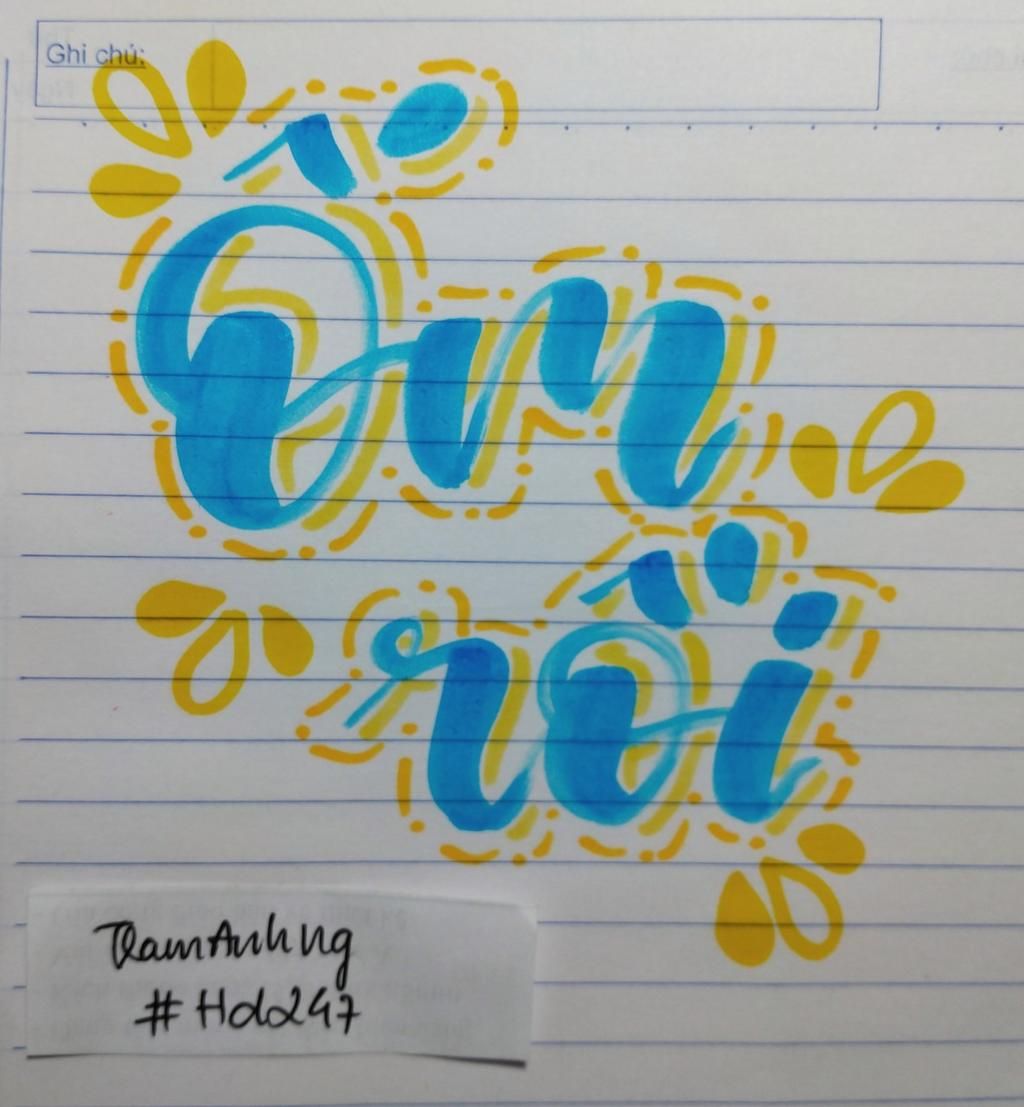 Ghi chú:
Ốm
rồi
TramAnhng